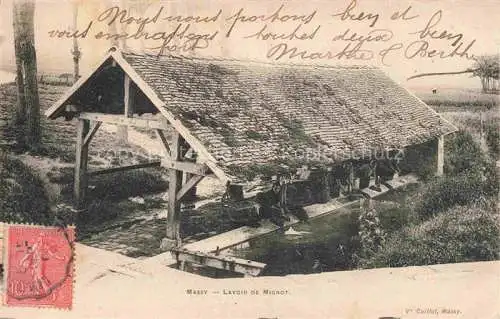 Nous nous portons bien et
vous embrassons toutes deux bien
fort Marthe & Berthe
MASSY — LAVOIR DE MIGNOT.
Vᵉ Cuillot, Massy.